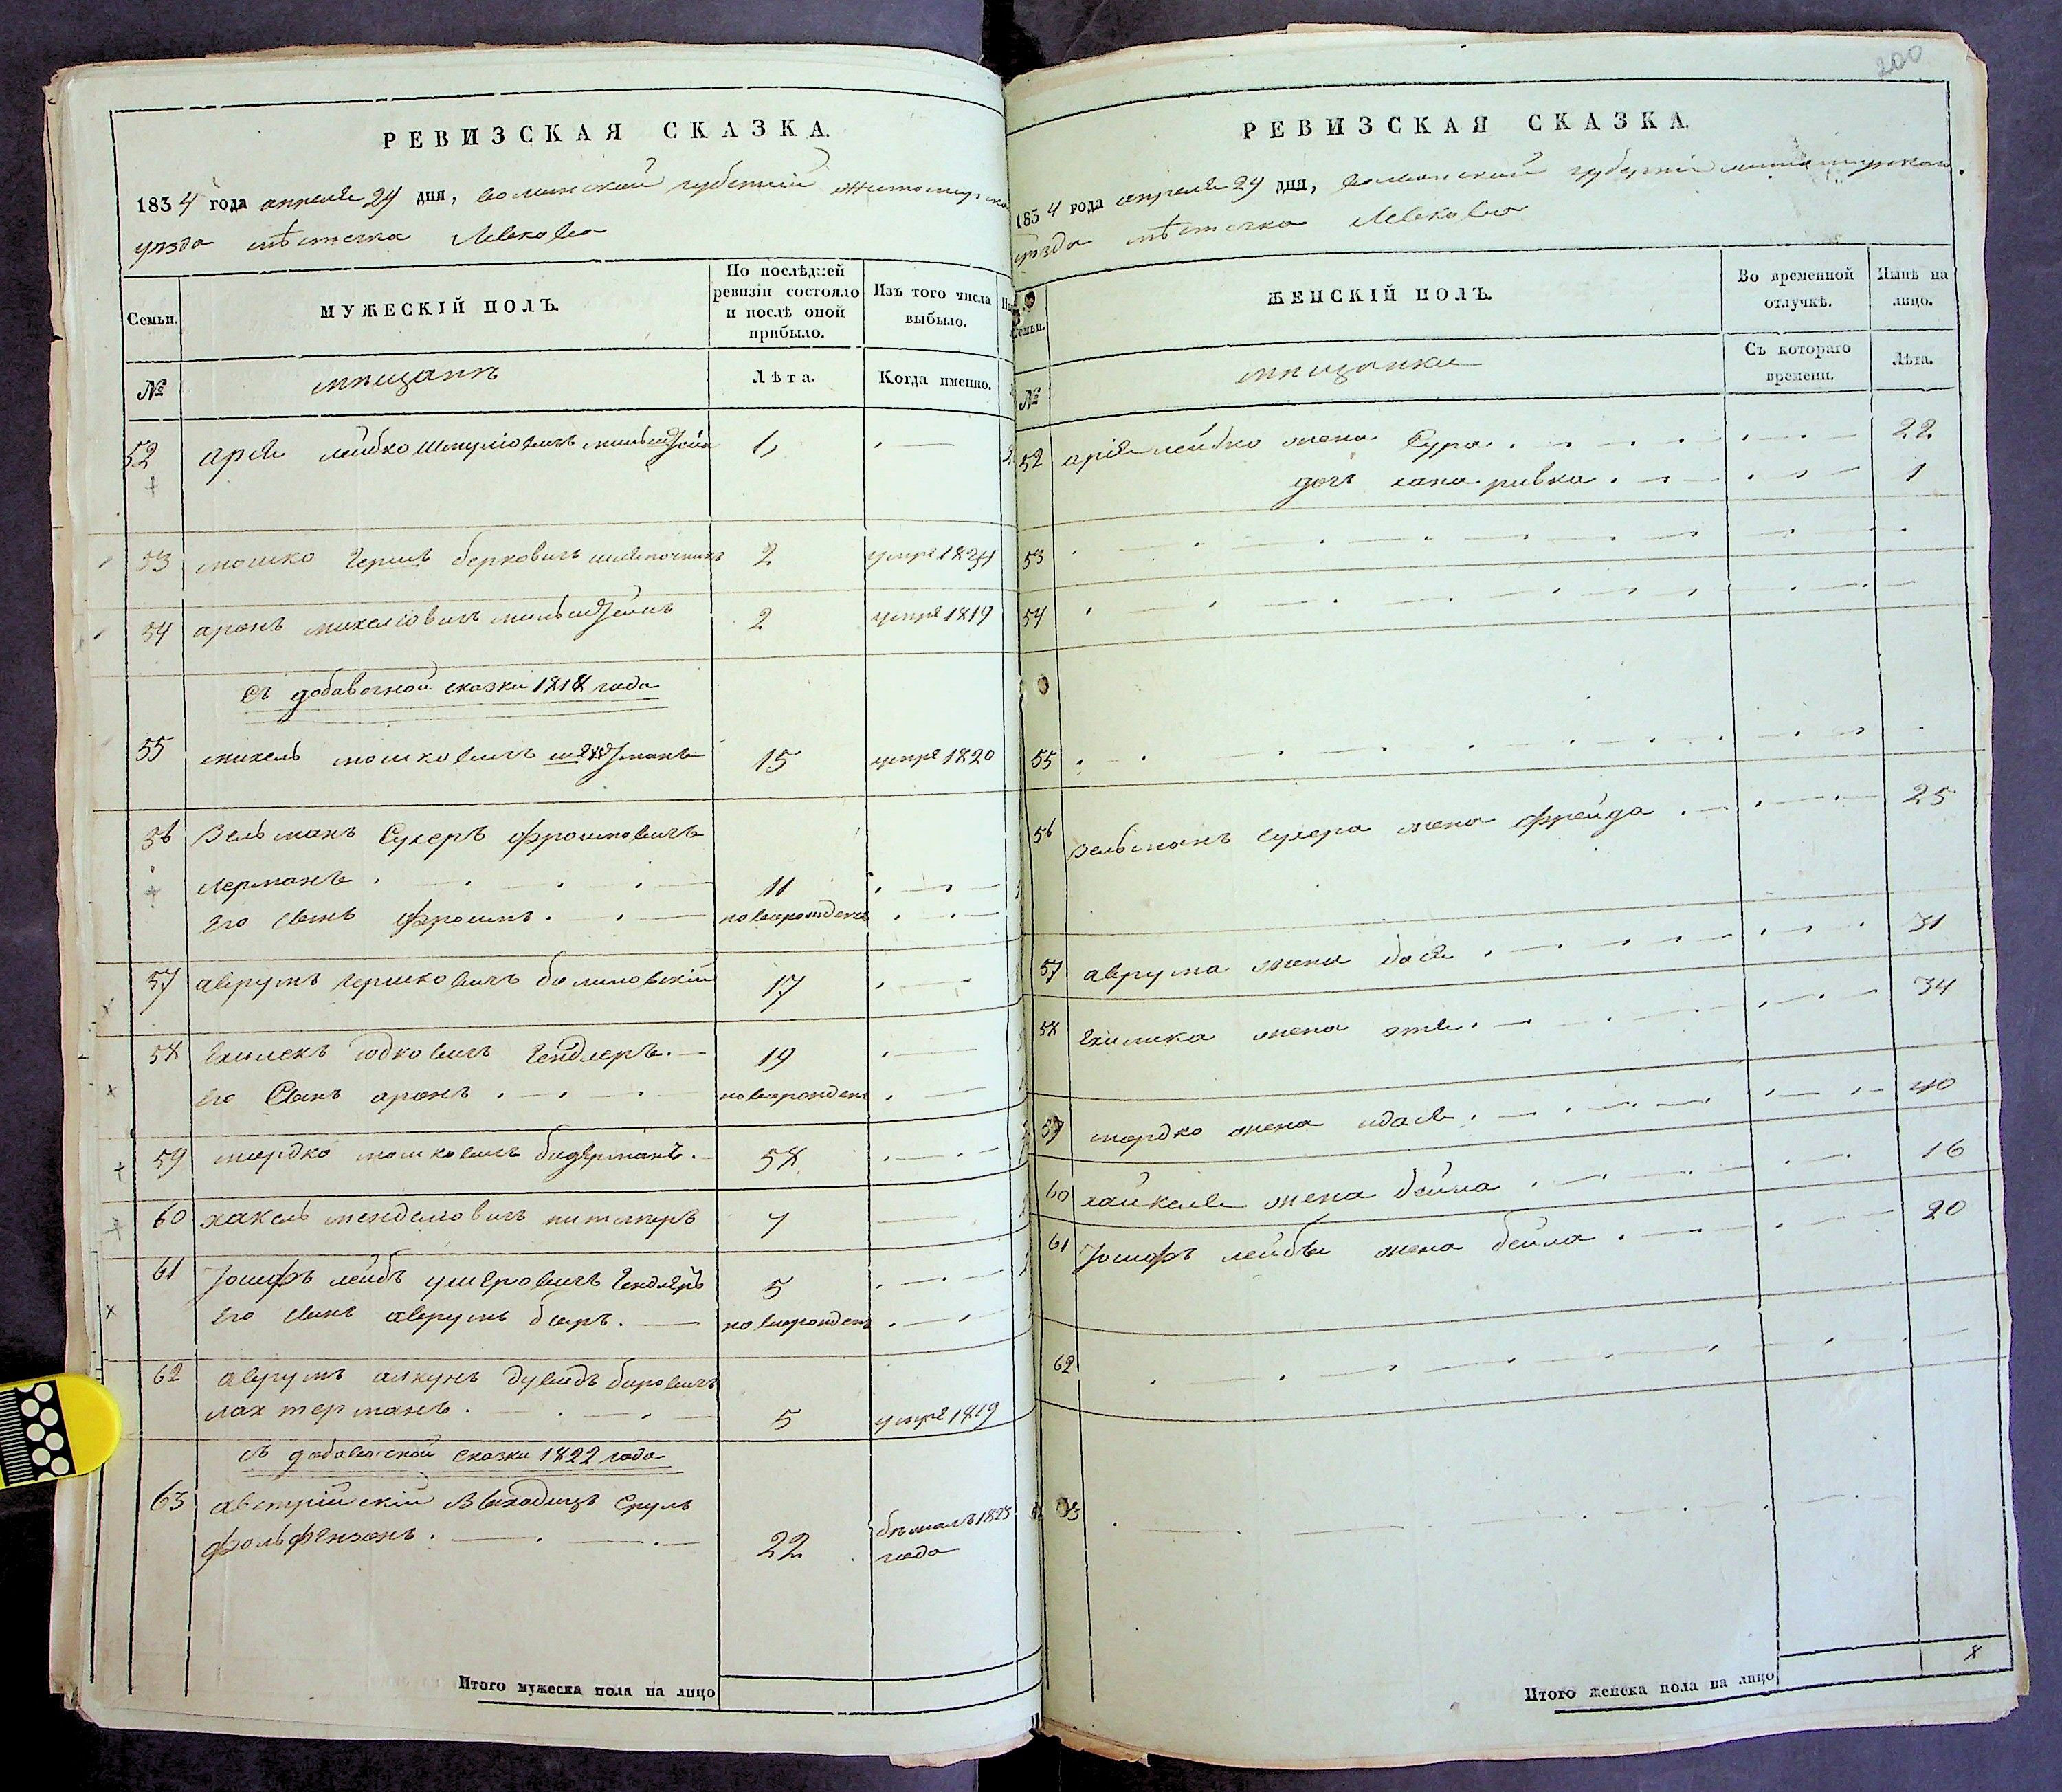 РЕВИЗСКАЯ СКАЗКА.
1834 года апреля 29 дня, волынской губернии житомирско
уезда мѣстечка Левкова
Семьи.
МУЖЕСКІЙ ПОЛЪ.
По послѣдней ревизіи состояло и послѣ оной прибыло.
Изъ того числа выбыло.
№
мещанъ
Лѣта.
Когда именно.
52 арія лейбко шмулiовичъ 1
53 мошко гершъ берковичъ шляпочникъ 2 умре 1824
54 аронъ михелiовичъ 2 умре 1819
съ добавочной сказки 1818 года
55 михель мошковичъ 15 умре 1820
56 Зельманъ Сухеръ фроимовичъ
лерманъ 11
Его сынъ фроимъ новорожденъ
57 аврумъ гершковичъ 17
58 Ехилекъ іодковичъ Гендлеръ 19
Его Сынъ аронъ новорожденъ
59 мордко мошковичъ бидерманъ 58
60 хакель менделовичъ 7
61 Іосифъ лейбъ ушеровичъ Гендлеръ 5
Его сынъ аврумъ беръ новорожденъ
62 аврумъ дувидъ беровичъ
лахтерманъ 5 умре 1819
съ добавочной сказки 1822 года
63 австрійскій выходецъ Сруль
фольфензонъ 22 бежалъ 1825
года
Итого мужеска пола на лицо
200
РЕВИЗСКАЯ СКАЗКА.
1834 года апреля 29 дня, волынской губерніи житомирскаго
уезда мѣстечка Левкова
Семьи.
ЖЕНСКІЙ ПОЛЪ.
Во временной отлучкѣ.
Нынѣ на лицо.
№
мещанки
Съ котораго времени.
Лѣта.
52 арія лейбко жена Сура 22
дочь хана ривка 1
53
54
55
56 Зельманъ сухера жена фрейда 25
57 аврума жена бася 31
58 Ехилика жена этя 34
59 мордко жена идася 40
60 хайкеля жена бейла 16
61 Іосифъ лейбы жена бейла 20
62
63
8
Итого женска пола на лицо